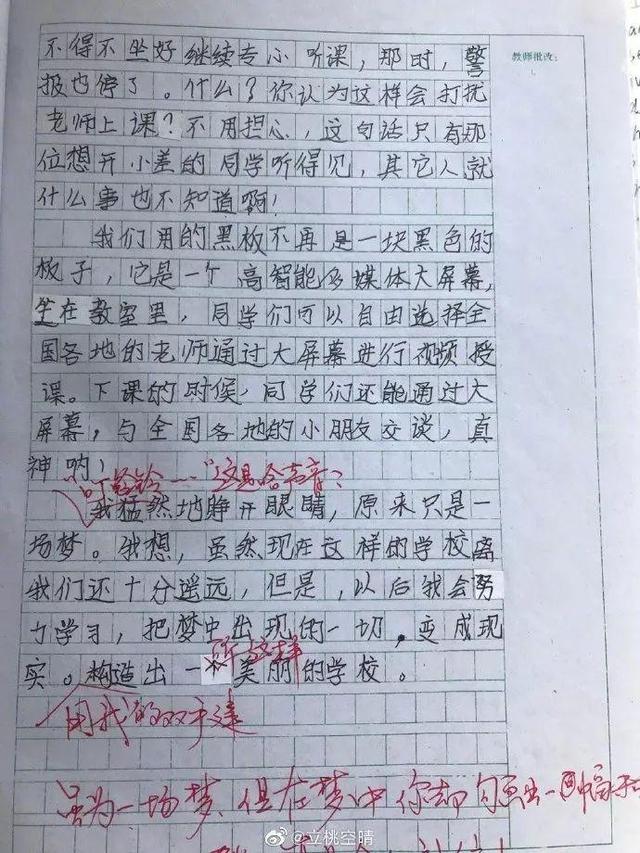 教师批改:
不得不坐好继续专心听课，那时，警
报也停了。什么？你认为这样会打扰
老师上课？不用担心，这句话只有那
位想开小差的同学听得见，其它人就
什么事也不知道啊！
我们用的黑板不再是一块黑色的
板子，它是一个高智能多媒体大屏幕，
坐在教室里，同学们可以自由选择全
国各地的老师通过大屏幕进行视频授
课。下课的时候，同学们还能通过大
屏幕，与全国各地的小朋友交谈，真
神呐！
"叮铃铃……"这是啥声音？
我猛然地睁开眼睛，原来只是一
场梦。我想，虽然现在这样的学校离
我们还十分遥远，但是，以后我会努
力学习，把梦中出现的一切，变成现
实。构造出一 美丽的学校。
所这样
用我的双手建
虽为一场梦，但在梦中你却勾画出一幅
@立桃空晴